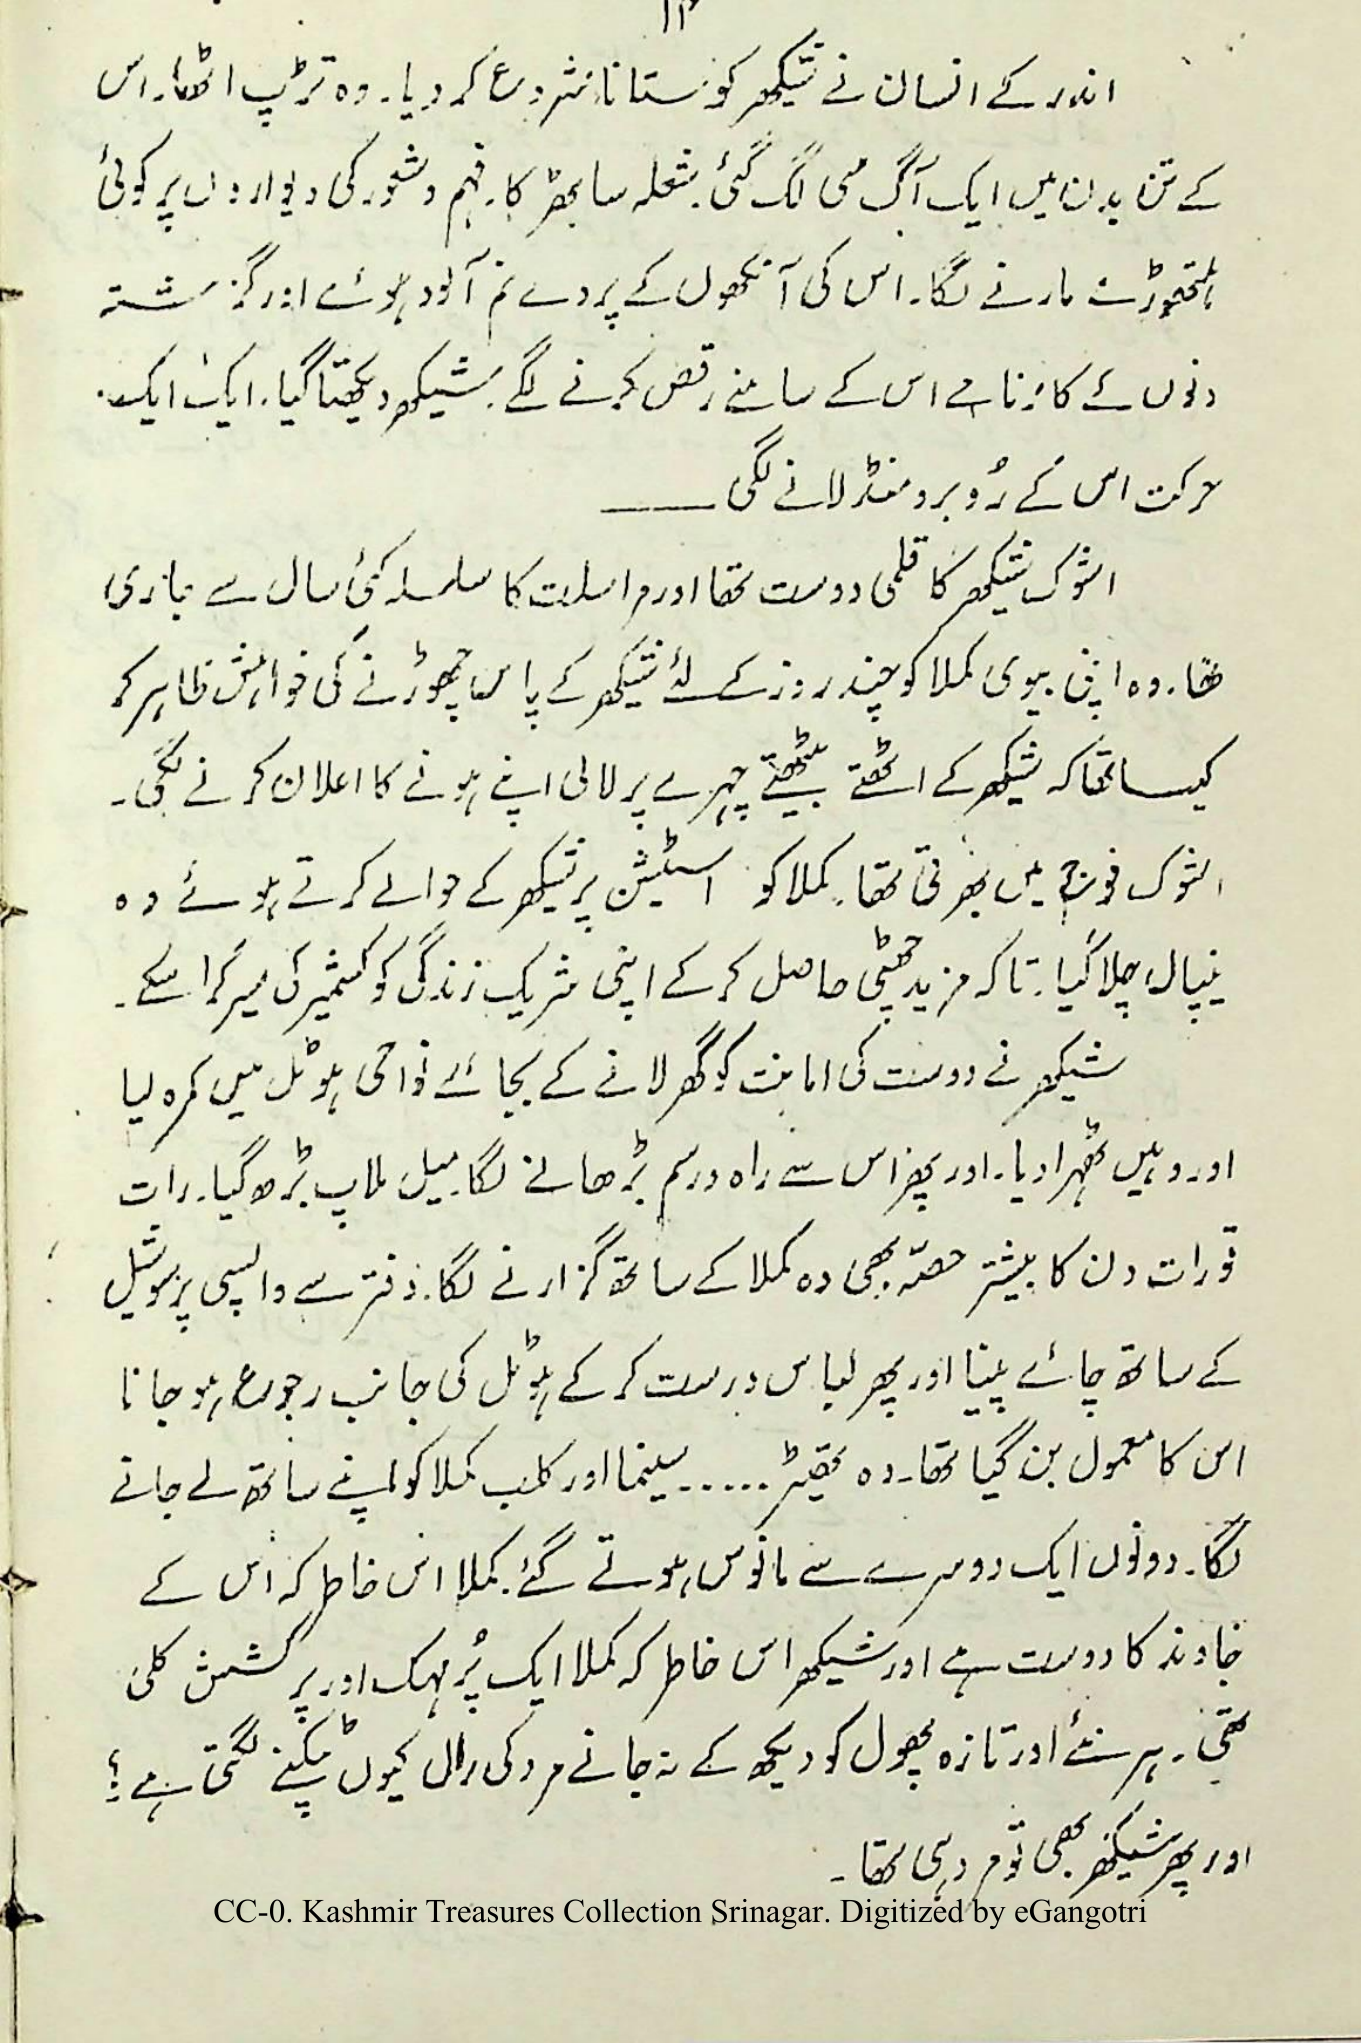 اندر کے انسان نے شیکھر کو ستانا شروع کر دیا۔ وہ تڑپ اٹھا۔ اس
کے تن بدن میں ایک آگ سی لگ گئی۔ شعلہ سا بھڑکا۔ فہم و شعور کی دیواروں پر کوئی
ہتھوڑے مارنے لگا۔ اس کی آنکھوں کے پردے نم آلود ہوئے اور گزشتہ
دنوں کے کارنامے اس کے سامنے رقص کرنے لگے۔ شیکھر دیکھتا گیا۔ ایک ایک
حرکت اس کے رُوبرو منڈلانے لگی ـــــــ
اشوک شیکھر کا قلمی دوست تھا اور مراسلت کا سلسلہ کئی سال سے جاری
تھا۔ وہ اپنی بیوی کملا کو چند روز کے لئے شیکھر کے پاس چھوڑنے کی خواہش ظاہر کر
کیسا تھا کہ شیکھر کے اٹھتے بیٹھتے چہرے پر لالی اپنے ہونے کا اعلان کرنے لگی۔
اشوک فوج میں بھرتی تھا۔ کملا کو اسٹیشن پر شیکھر کے حوالے کرتے ہوئے وہ
نیپال چلا گیا۔ تاکہ مزید چھٹی حاصل کر کے اپنی شریک زندگی کو کشمیر کی سیر کرا سکے۔
شیکھر نے دوست کی امانت کو گھر لانے کے بجائے نواحی ہوٹل میں کمرہ لیا
اور وہیں ٹھہرا دیا۔ اور پھر اس سے راہ و رسم بڑھانے لگا۔ میل ملاپ بڑھ گیا۔ رات
تو رات دن کا بیشتر حصہ بھی وہ کملا کے ساتھ گزارنے لگا۔ دفتر سے واپسی پر سوشیل
کے ساتھ چائے پینا اور پھر لباس درست کر کے ہوٹل کی جانب رجوع ہو جانا
اس کا معمول بن گیا تھا۔ وہ تھیٹر ...... سینما اور کلب کملا کو اپنے ساتھ لے جانے
لگا۔ دونوں ایک دوسرے سے مانوس ہوتے گئے۔ کملا اس خاطر کہ اس کے
خاوند کا دوست ہے اور شیکھر اس خاطر کہ کملا ایک پُر مہک اور پر کشش کلی
تھی۔ ہر نئے اور تازہ پھول کو دیکھ کے نہ جانے مرد کی رال کیوں ٹپکنے لگتی ہے؟
اور پھر شیکھر بھی تو مرد ہی تھا۔
CC-0. Kashmir Treasures Collection Srinagar. Digitized by eGangotri